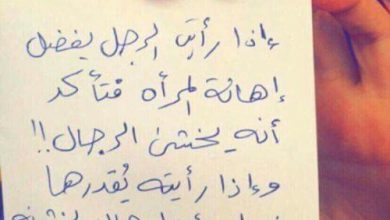 إذا رأيت الرجل يفضل
إهانة المرأه فتأكد
أنه يخشى الرجال !!
وإذا رأيته يُقدرها